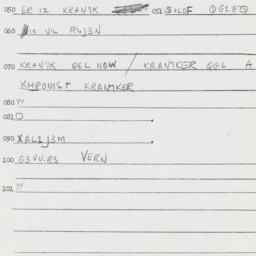 050 ER IZ KRANTK 052 S+LOF QGLEQ
060 IX VIL RLJ3N
070 KRANTK QGL NOW / KRANTKER QGL A
KHRONIST KRANTKER
080 Y!
081 O
090 XAL1J3M
100 G3VU.R3 VERN
101 Y!